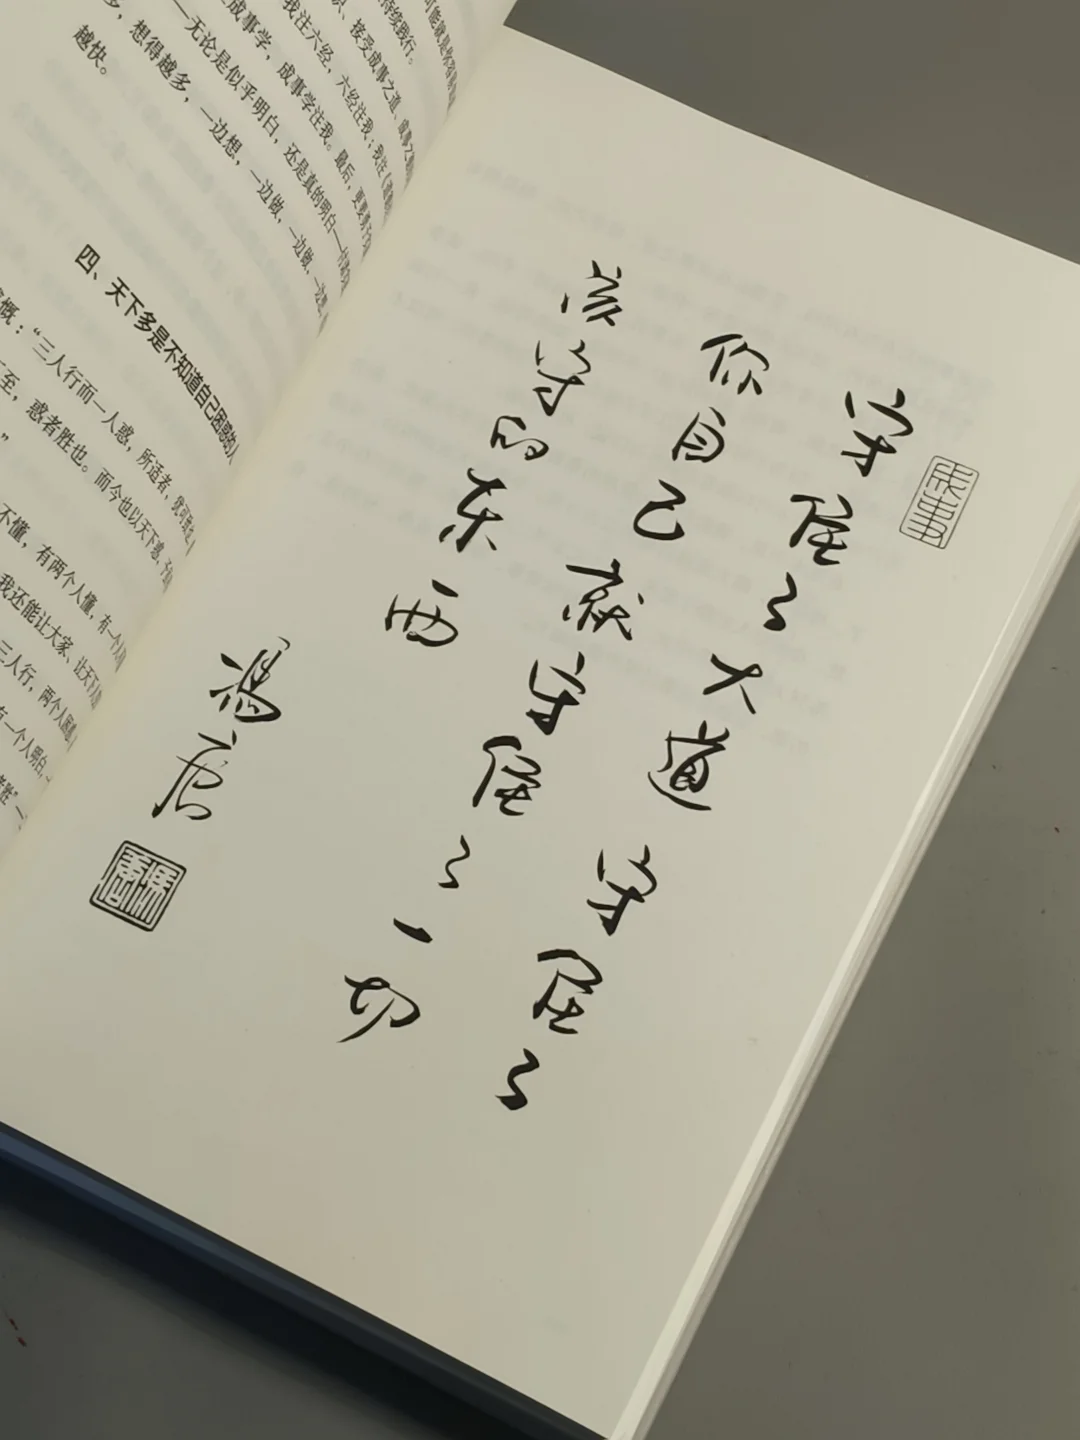 持续践行。
接受成事之道、成事之
我注六经，六经注我；我注《道德
成事学，成事学注我。最后，更要
——无论是似乎明白，还是真的明白——
多，想得越多，一边想，一边做，一边做，一边想
越快。
四、天下多是不知道自己困惑的人
慨：“三人行而一人惑，所适者，犹可致也
至，惑者胜也。而今也以天下惑，予
”
不懂，有两个人懂，有一个人
我还能让大家、让天下人
三人行，两个人困惑
有一个人明白，
者胜”一
成事
守住了大道守住了
你自己就守住了一切
该守的东西
馮唐
馮唐